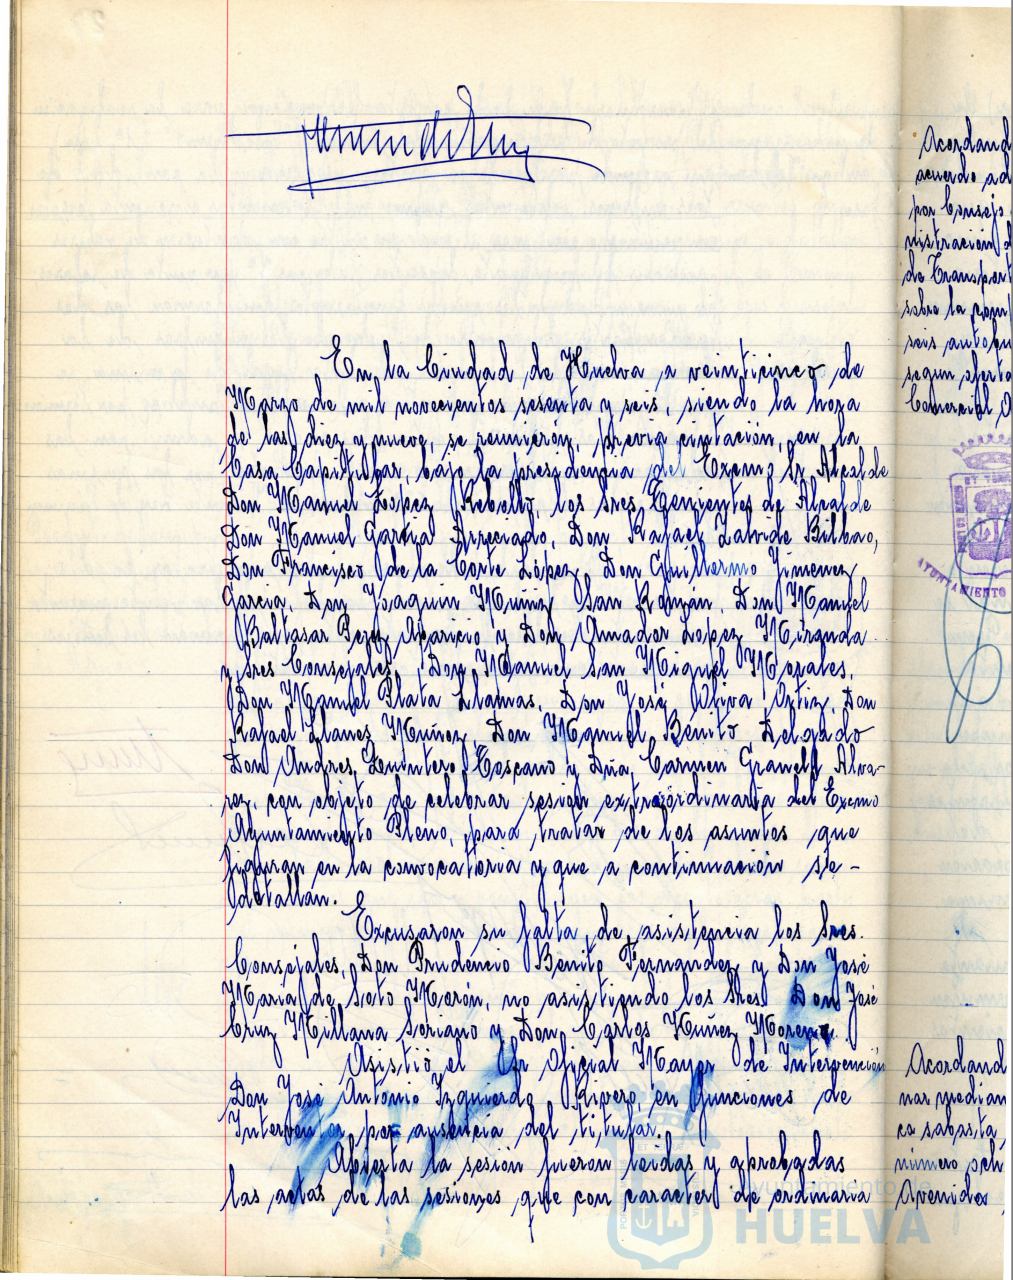 En la Ciudad de Huelva a veinticinco de
Marzo de mil novecientos sesenta y seis, siendo la hora
de las diez y nueve, se reunierón, previa citación, en la
Casa Capitular, bajo la presidencia del Excmo Sr. Alcalde
Don Manuel López Rebollo, los Sres Tenientes de Alcalde
Don Manuel García Arreciado, Don Rafael Zalvide Bilbao,
Don Francisco de la Corte López, Don Guillermo Jimenez
Garcia, Don Joaquin Muñiz San Román, Don Manuel
Baltasar Perez Aparicio y Don Amador Lopez Miranda
y Sres Consejales, Don Manuel San Miguel Morales,
Don Manuel Plata Llamas, Don José Oliva Ortiz, Don
Rafael Llanes Muñoz, Don Manuel Benito Delgado
Don Andres Quintero Toscano y Dña Carmen Granell Alva-
rez, con objeto de celebrar sesion extraordinaria del Excmo
Ayuntamiento Pleno, para tratar de los asuntos que
figuran en la convocatoria y que a continuación se-
detallan.
Excusaron su falta de asistencia los Sres.
Consejales, Don Prudencio Benito Fernandez y Don José
Maria de Soto Morón, no asistiendo los Sres Don José
Cruz Millana Soriano y Don Carlos Nuñez Moreno.
Asistió el Sr Oficial Mayor de Intervención
Don José Antonio Izquierdo Rivero, en funciones de
Interventor, por ausencia del titular.
Abierta la sesión fueron leidas y aprobadas
las actas de las sesiones que con caracter de ordinaria
Acordand
acuerdo ad
por Consejo
nistración d
de Transport
sobre la com
seis autobu
segun oferta
Comercial
AYUNTAMIENTO
Acordand
nar median
ca subasta,
número och
Avenidas
Ayuntamiento de
HUELVA